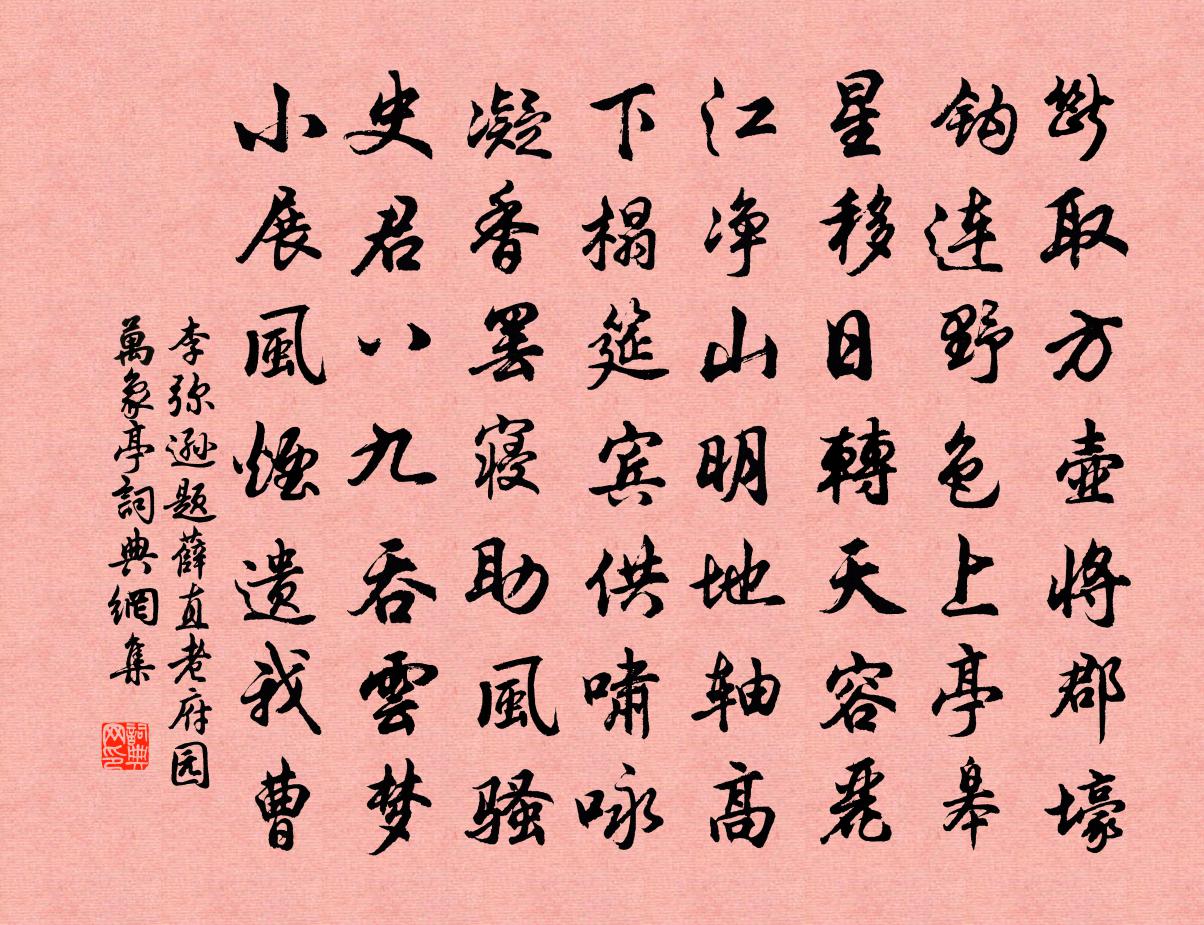 断取方壺將郡壕
鈎連野色上亭皋
星移日轉天容麗
江净山明地轴高
下榻筵宾供嘯咏
凝香罢寝助風骚
史君八九吞雲梦
小展風煙遗我曹
李弥遜题薛直老府园
萬象亭詞典網集
詞典网印